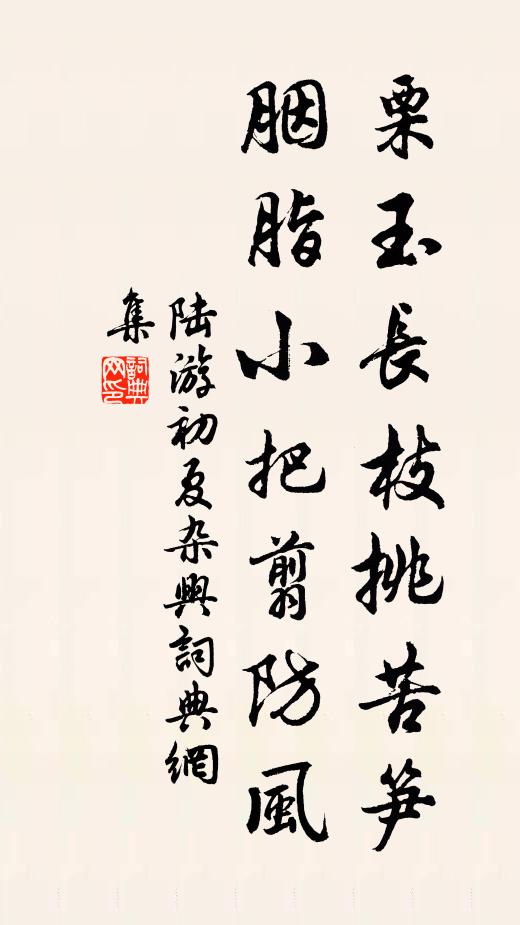 栗玉長枝挑苦笋
胭脂小把翦防風
陆游初夏杂興詞典網
集
詞典
网印